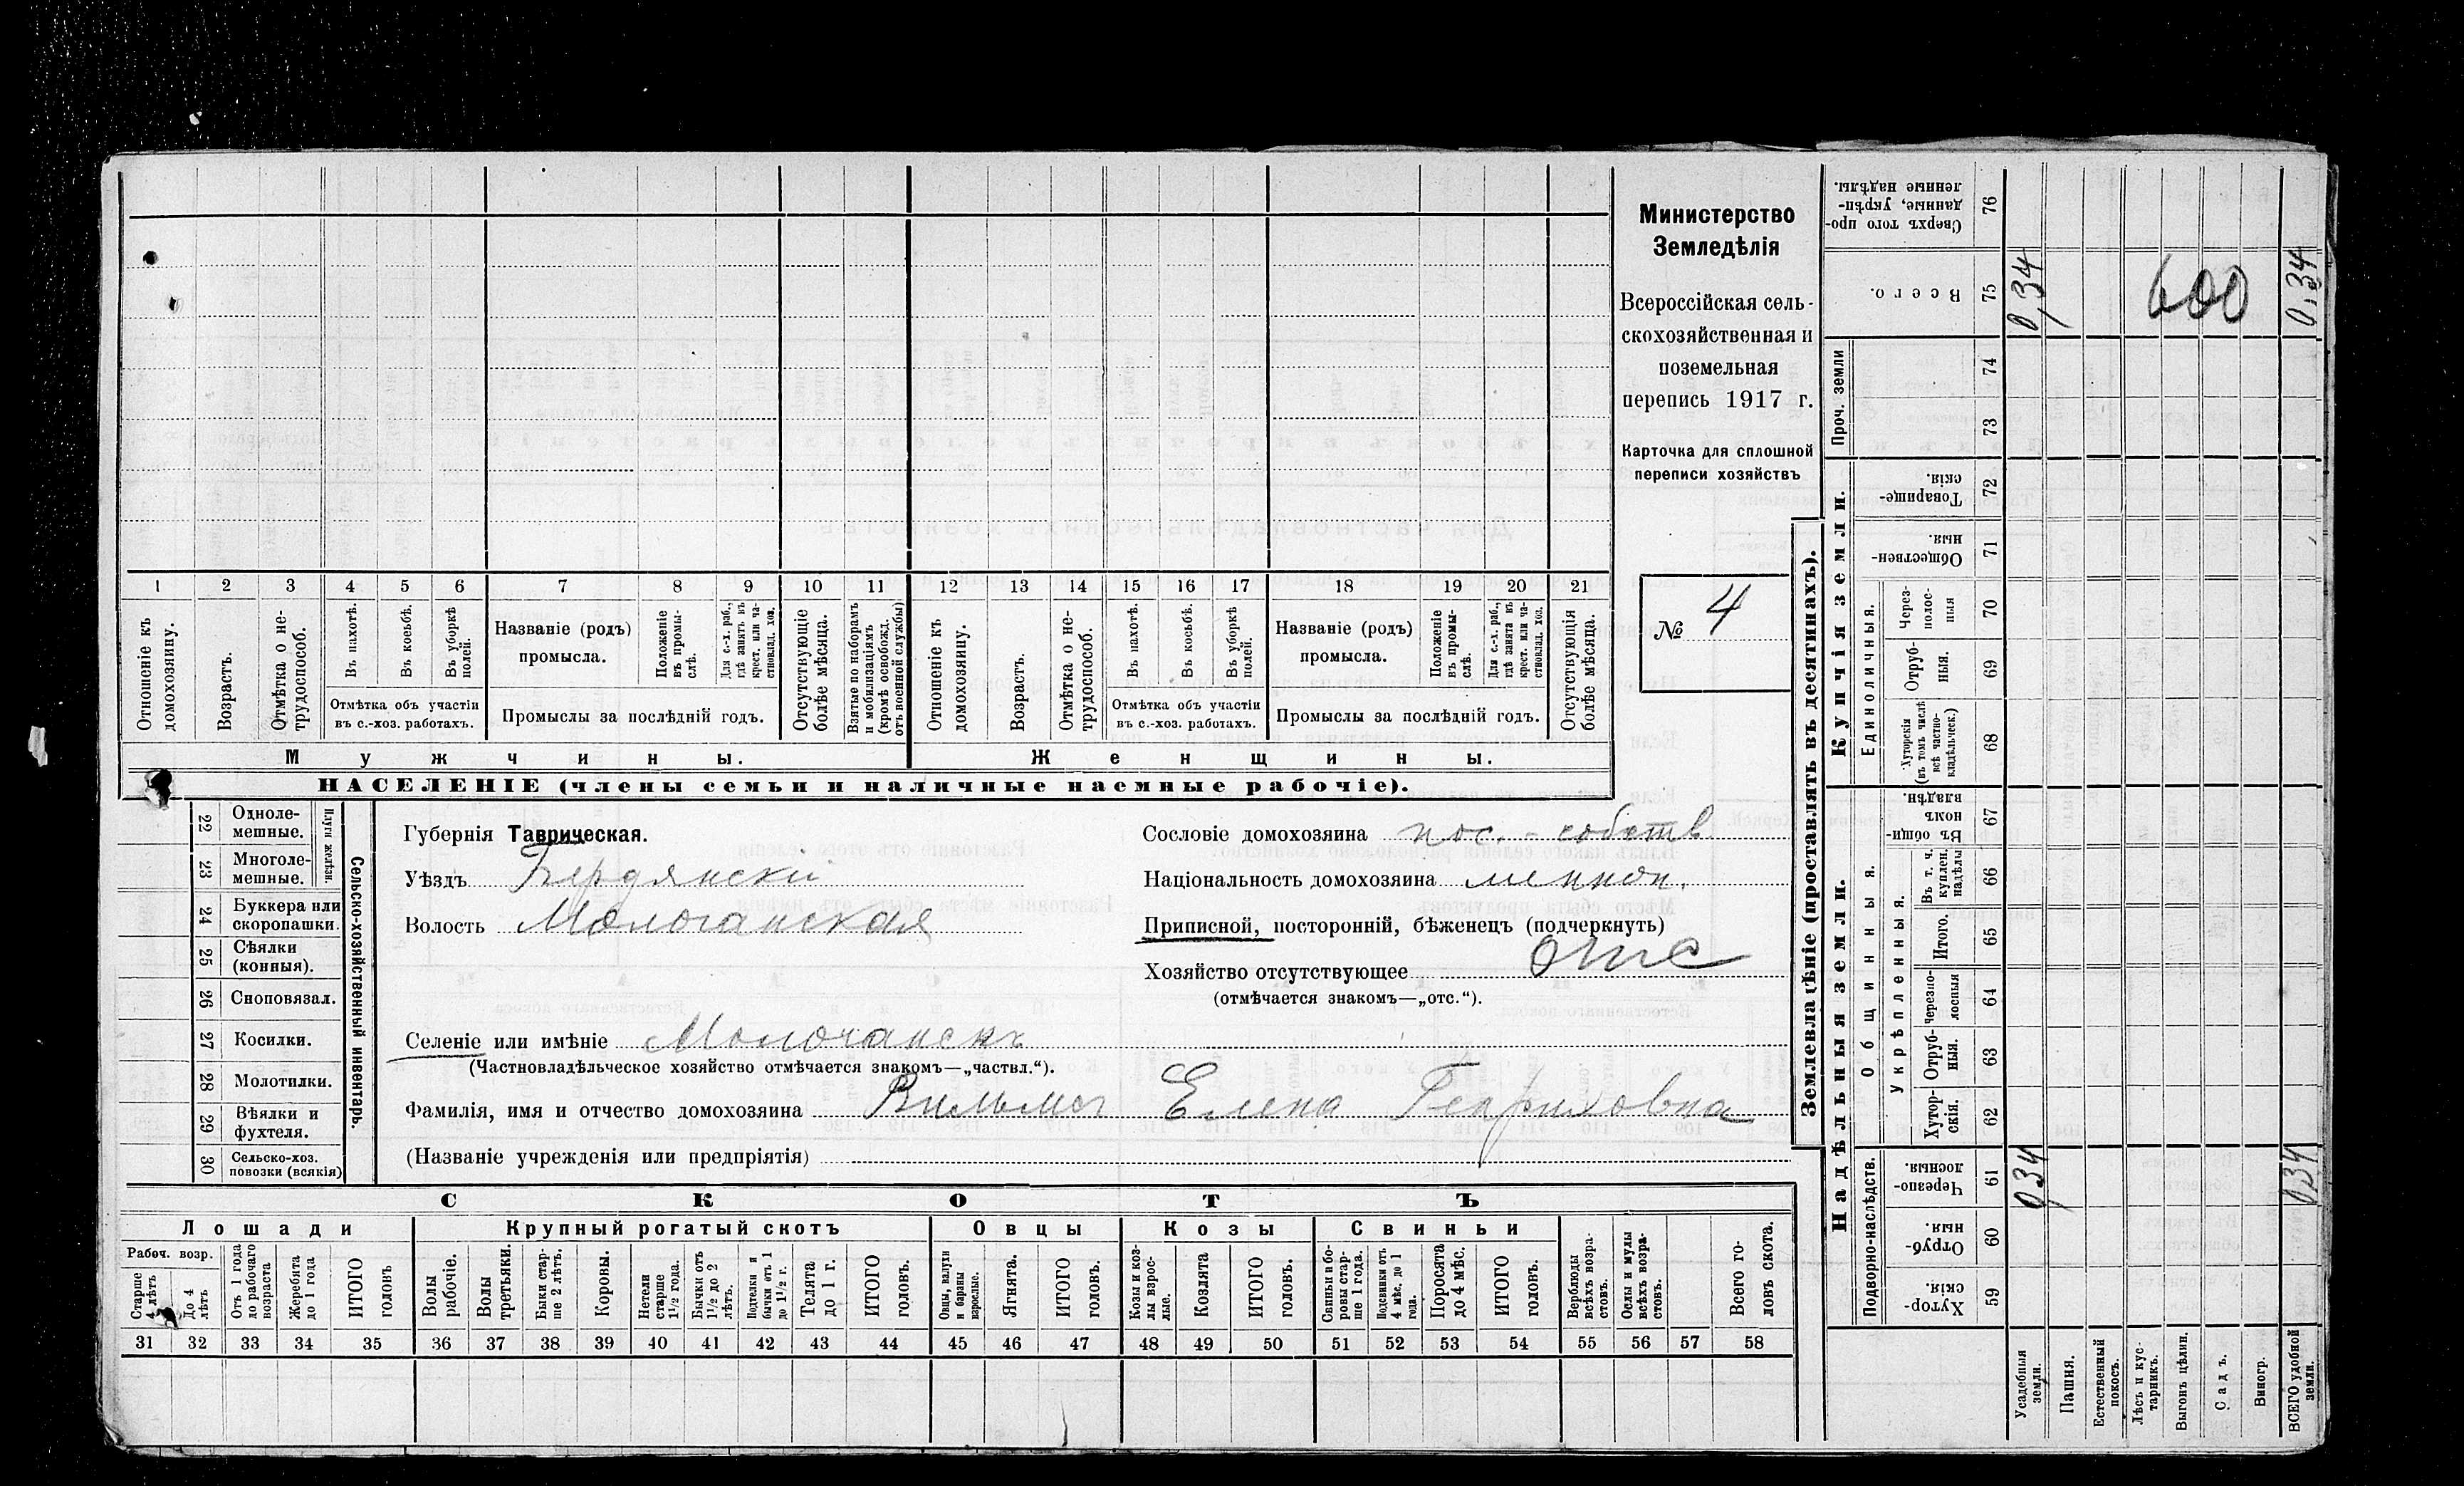 1 2 3 4 5 6 7 8 9 10 11 12 13 14 15 16 17 18 19 20 21
Отношеніе къ домохозяину.
Возрастъ.
Отмѣтка о не-
трудоспособ.
Въ пахотѣ.
Въ косьбѣ.
Въ уборкѣ полей.
Отмѣтка объ участіи
въ с.-хоз. работахъ.
Названіе (родъ)
промысла.
Положеніе въ промы-
слѣ.
Для с.-х. раб.,
гдѣ занятъ въ
крест. или ча-
стновлад. хоз.
Промыслы за послѣдній годъ.
Отсутствующіе
болѣе мѣсяца.
Взятые по наборамъ
и мобилизаціямъ
(кромѣ освобожд.
отъ военной службы)
Отношеніе къ
домохозяину.
Возрастъ.
Отмѣтка о не-
трудоспособ.
Въ пахотѣ.
Въ косьбѣ.
Въ уборкѣ
полей.
Отмѣтка объ участіи
въ с.-хоз. работахъ.
Названіе (родъ)
промысла.
Положеніе
въ промы-
слѣ.
Для с.-х. раб.,
гдѣ занята въ
крест. или ча-
стновлад. хоз.
Промыслы за послѣдній годъ.
Отсутствующія
болѣе мѣсяца.
Мужчины.
Женщины.
НАСЕЛЕНІЕ (члены семьи и наличные наемные рабочіе).
Министерство
Земледѣлія
Всероссійская сель-
скохозяйственная и
поземельная
перепись 1917 г.
Карточка для сплошной
переписи хозяйствъ
№ 4
22 Одноле-
мешные.
23 Многоле-
мешные.
Плуги желѣзн.
24 Буккера или
скоропашки.
25 Сѣялки
(конныя).
26 Сноповязал.
27 Косилки.
28 Молотилки.
29 Вѣялки и
фухтеля.
30 Сельско-хоз.
повозки (всякія)
Сельско-хозяйственный инвентарь.
Губернія Таврическая.
Уѣздъ Бердянскій
Волость Молочанская
Сословіе домохозяина пос. - собств
Національность домохозяина меннон.
Приписной, посторонній, бѣженецъ (подчеркнуть)
Хозяйство отсутствующее отс
(отмѣчается знакомъ—„отс.“).
Селеніе или имѣніе Молочанскъ
(Частновладѣльческое хозяйство отмѣчается знакомъ—„частвл.“).
Фамилія, имя и отчество домохозяина Вильмсъ Елена Генриховна
(Названіе учрежденія или предпріятія)
СКОТЪ
Лошади
Крупный рогатый скотъ
Овцы
Козы
Свиньи
Рабоч. возр.
Старше
4 лѣтъ
До 4
лѣтъ
Отъ 1 года
до рабочаго
возраста
Жеребята
до 1 года
ИТОГО
головъ
Волы
рабочіе.
Волы
третьяки.
Быки стар-
ше 2 лѣтъ.
Коровы.
Нетели
старше
1½ года.
Бычки отъ
1½ до 2
лѣтъ.
Подтелки и
бычки отъ 1
до 1½ г.
Телята
до 1 г.
ИТОГО
головъ.
Овцы, валухи
и бараны
взрослые.
Ягнята.
ИТОГО
головъ.
Козы и коз-
лы взрос-
лые.
Козлята
ИТОГО
головъ.
Свиньи и бо-
ровы стар-
ше 1 года.
Подсвинки отъ
4 мѣс. до 1
года.
Поросята
до 4 мѣс.
ИТОГО
головъ.
Верблюды
всѣхъ возра-
стовъ.
Ослы и мулы
всѣхъ возра-
стовъ.
Всего го-
ловъ скота.
31 32 33 34 35 36 37 38 39 40 41 42 43 44 45 46 47 48 49 50 51 52 53 54 55 56 57 58
Землевладѣніе (проставлять въ десятинахъ).
Сверхъ того про-
данные, укрѣп-
ленные надѣлы.
76
Всего.
75
0,34
600
0,34
Проч. земли
74
73
Купчія земли.
Товарище-
скія.
72
Обществен-
ныя.
71
Единоличныя.
Через-
полос-
ныя
70
Отруб-
ныя.
69
Хуторскія
(въ томъ числѣ
всѣ частно-
владѣльческ.)
68
Надѣльныя земли.
Общинныя.
Въ общин-
номъ
владѣн.
67
Укрѣпленныя.
Въ т. ч.
куплен.
надѣлы
66
Итого.
65
Черезпо-
лосныя
64
Отруб-
ныя.
63
Хутор-
скія.
62
Подворно-наслѣдств.
Черезпо-
лосныя.
61
034
034
Отруб-
ныя.
60
Хутор-
скія.
59
Усадебныя
земли.
Пашня.
Естественный
покосъ.
Лѣсъ и кус-
тарникъ.
Выгонъ цѣлин.
Садъ.
Виногр.
ВСЕГО удобной
земли.